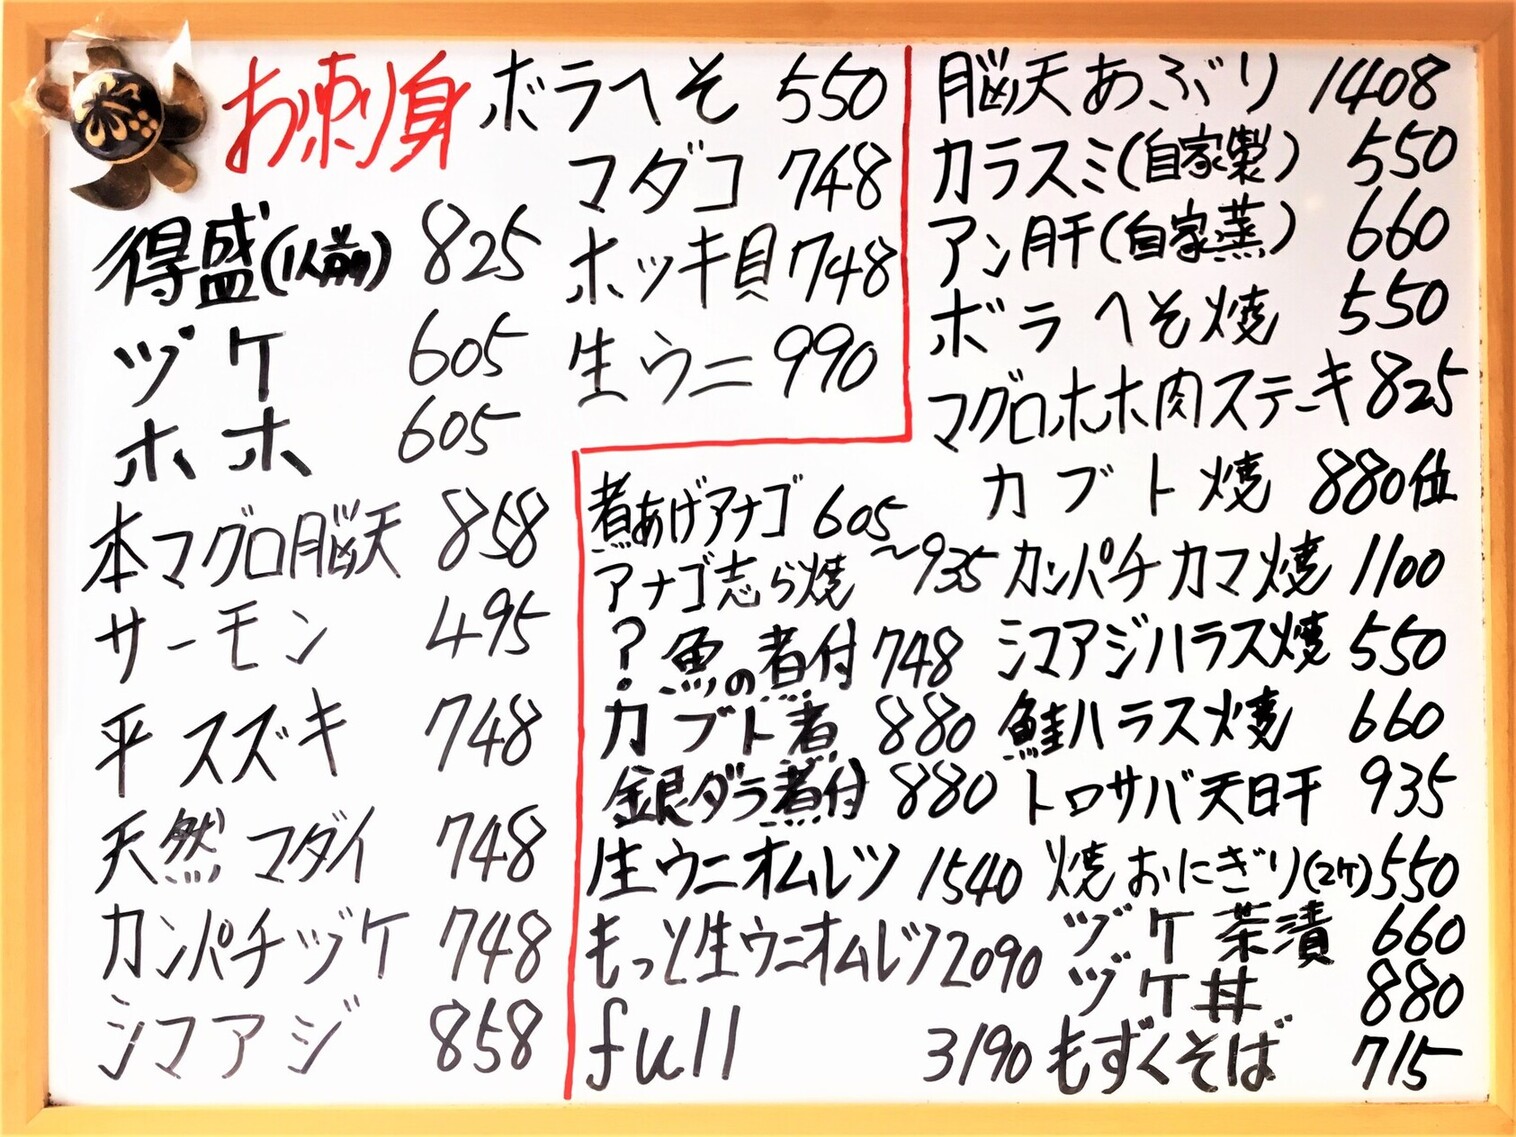 お刺り身
得盛(1人前) 825
ヅケ 605
ホホ 605
本マグロ脳天 858
サーモン 495
平スズキ 748
天然マダイ 748
カンパチヅケ 748
シマアジ 858
ボラへそ 550
マダコ 748
ホッキ貝 748
生ウニ 990
煮あげアナゴ 605
アナゴ志ら焼 〜935
?魚の煮付 748
カブト煮 880
銀ダラ煮付 880
生ウニオムレツ 1540
もっと生ウニオムレツ 2090
full 3190
脳天あぶり 1408
カラスミ(自家製) 550
アン肝(自家蒸) 660
ボラへそ焼 550
マグロホホ肉ステーキ 825
カブト焼 880位
カンパチカマ焼 1100
シマアジハラス焼 550
鮭ハラス焼 660
トロサバ天日干 935
焼おにぎり(2ケ) 550
ヅケ茶漬 660
ヅケ丼 880
もずくそば 715